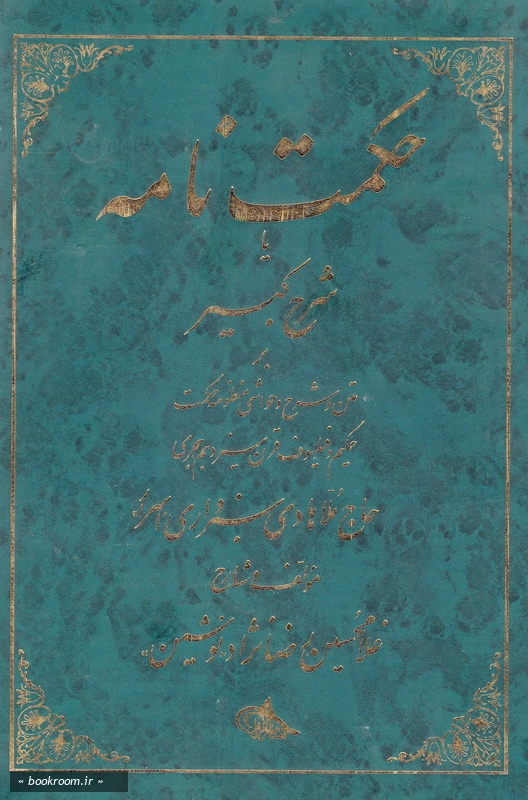 حکمت نامه
یا
شرح کبیر
متن و شرح و حواشی منظومه حکمت
حکیم و فیلسوف قرن سیزدهم هجری
حاج ملا هادی سبزواری «اسرار»
مؤلف و شارح
غلامحسین رضانژاد «نوشین»
« bookroom.ir »